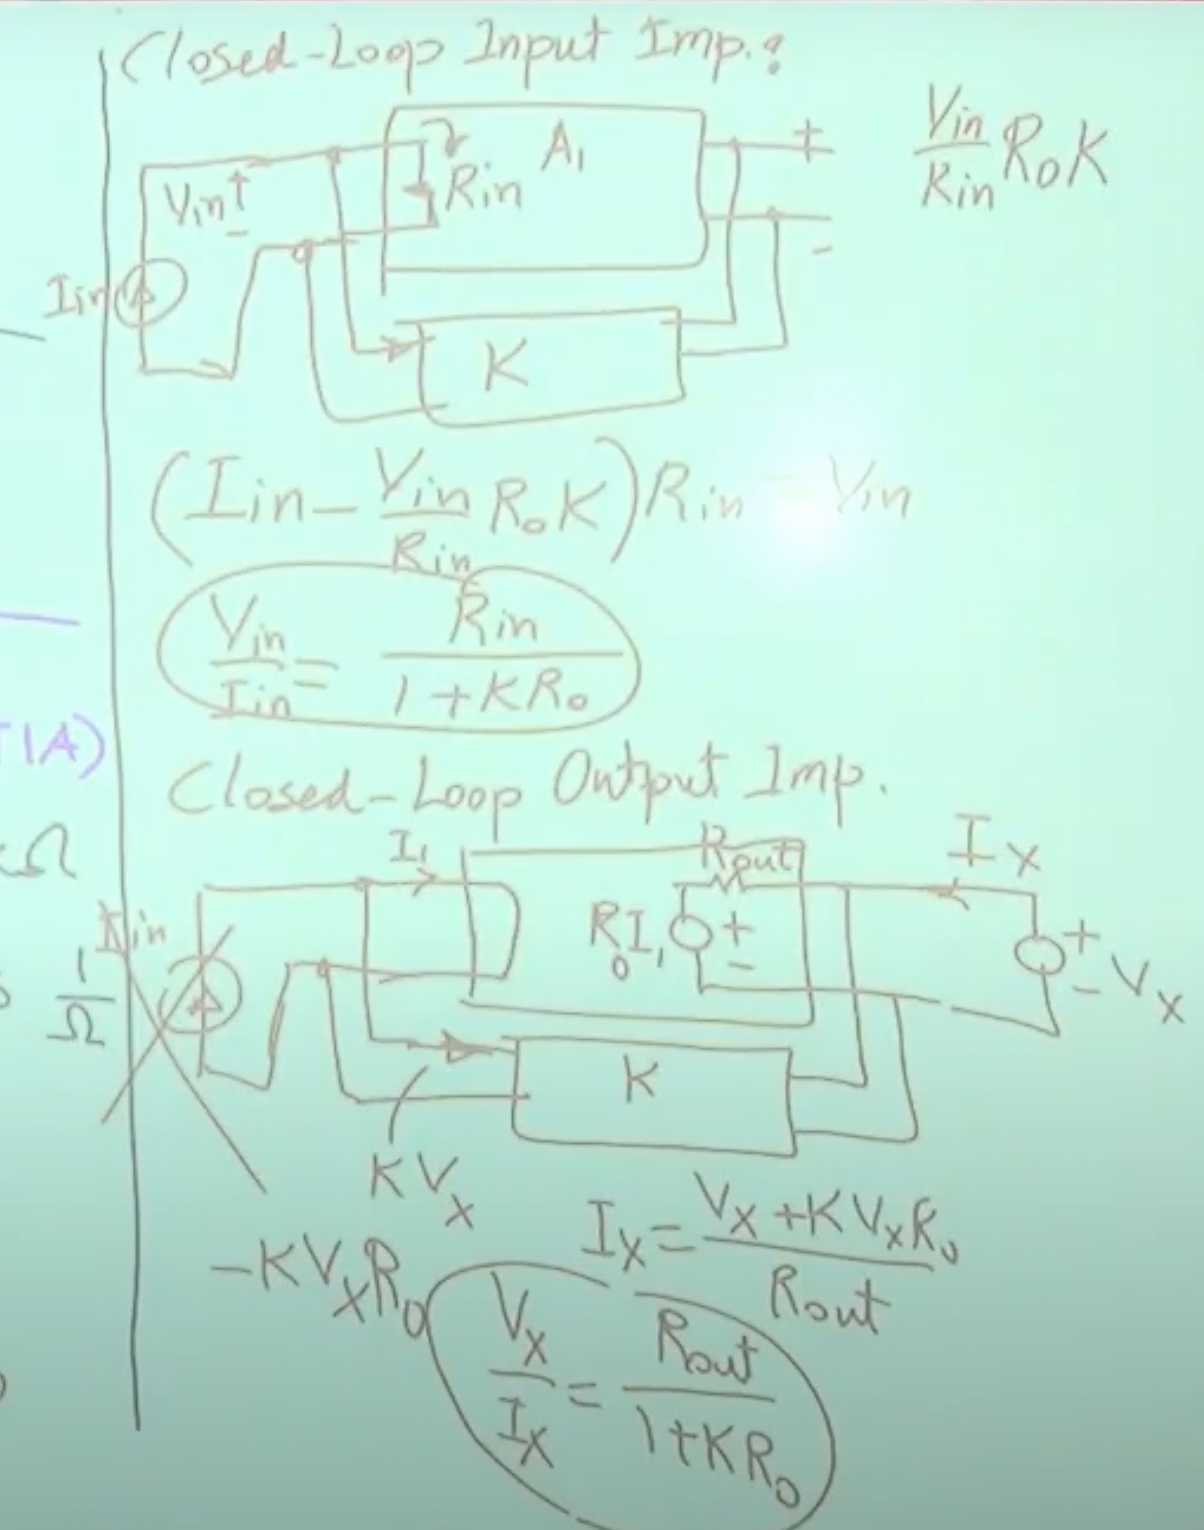 Closed-Loop Input Imp.:
A1
+
Vin/Rin R0K
Vin
+
-
Rin
-
Iin
K
(Iin - Vin/Rin R0K) Rin = Vin
Vin/Iin = Rin/(1+KR0)
TIA)
Closed-Loop Output Imp.
Ω
I1
Rout
IX
Iin
R0I1
+
-
+
-
VX
1/Ω
K
KVX
IX = (VX+KVXR0)/Rout
-KVXR0
VX/IX = Rout/(1+KR0)